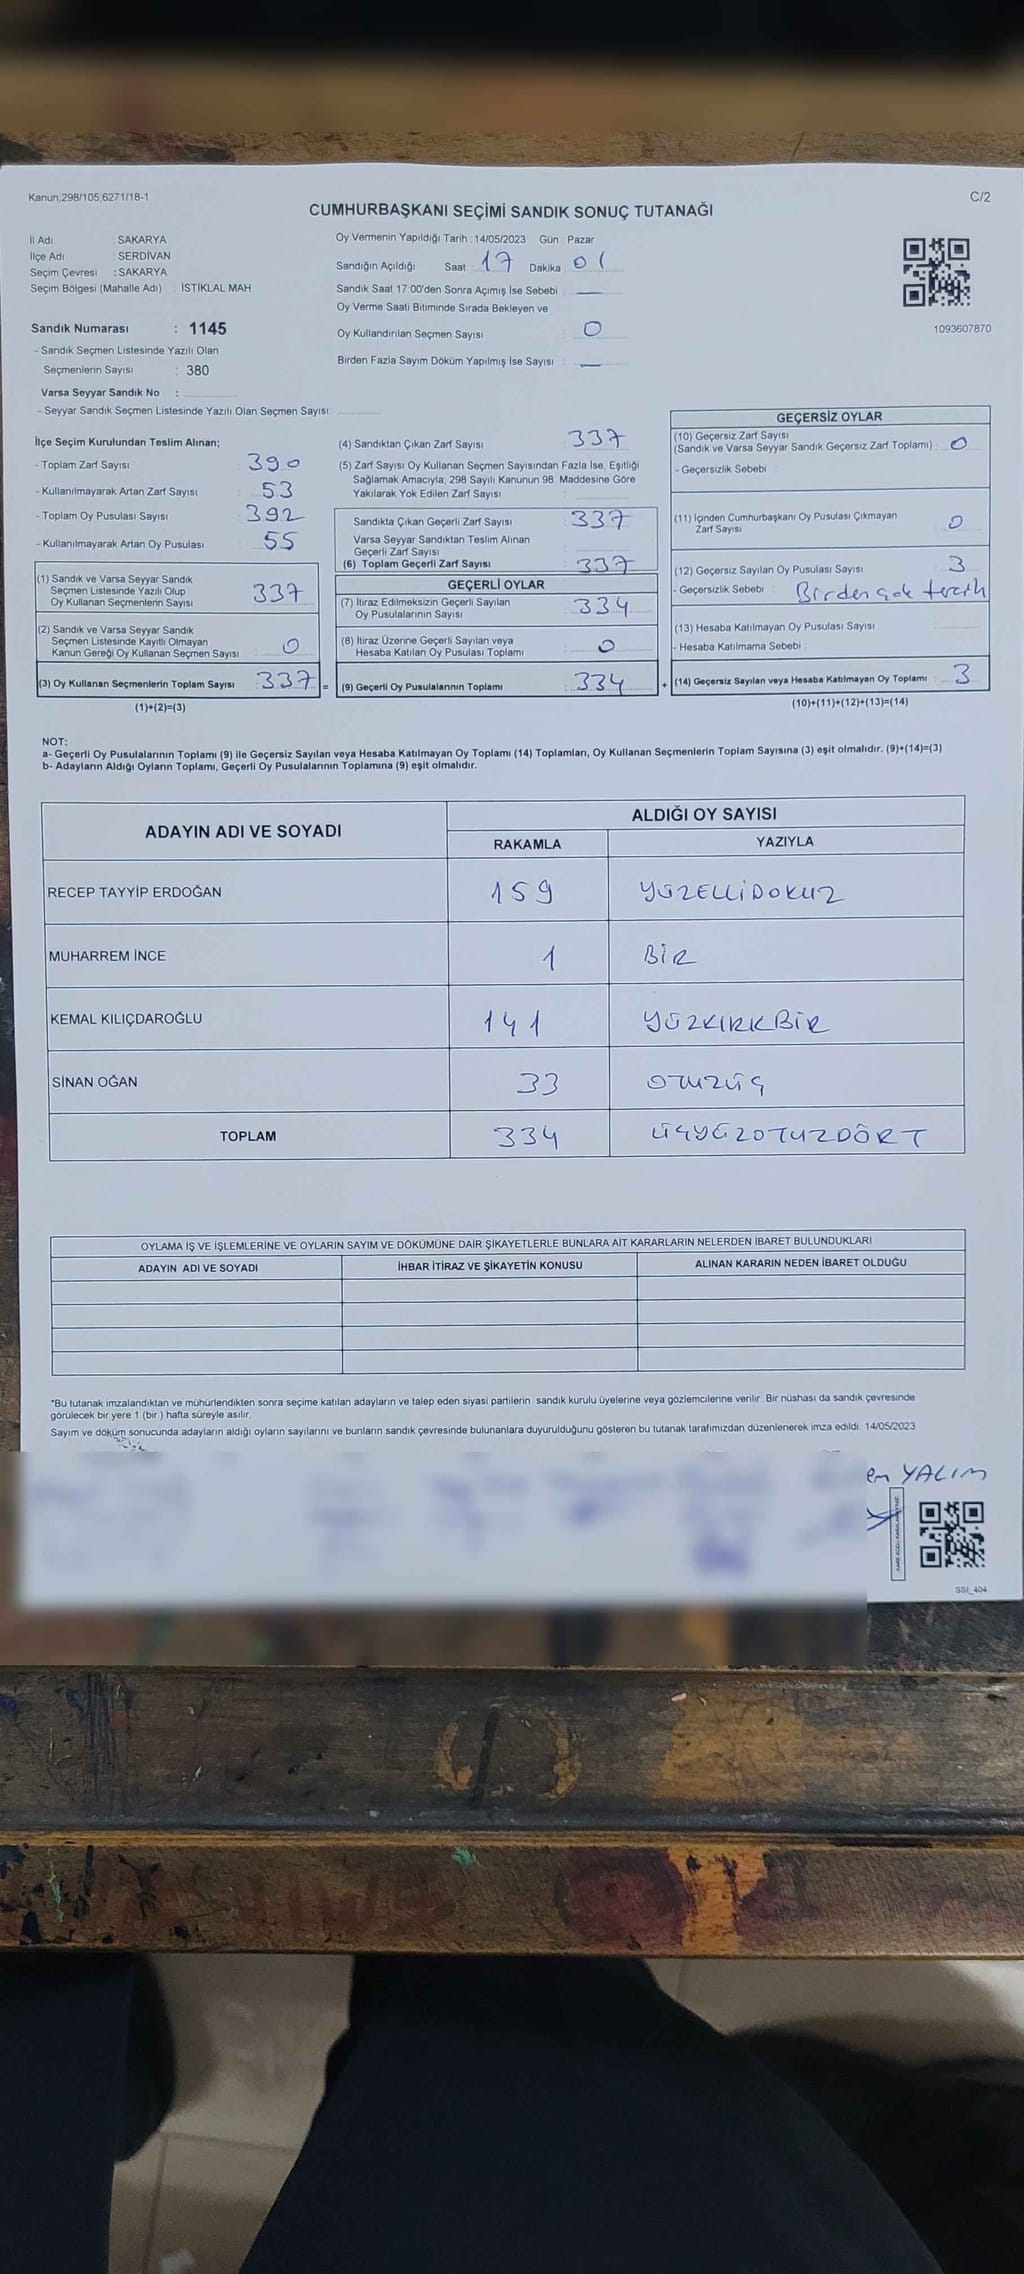 Kanun;298/105,6271/18-1
C/2
CUMHURBAŞKANI SEÇİMİ SANDIK SONUÇ TUTANAĞI
İl Adı : SAKARYA
İlçe Adı : SERDİVAN
Seçim Çevresi : SAKARYA
Seçim Bölgesi (Mahalle Adı) : İSTİKLAL MAH.
Sandık Numarası : 1145
- Sandık Seçmen Listesinde Yazılı Olan
Seçmenlerin Sayısı : 380
Varsa Seyyar Sandık No :
- Seyyar Sandık Seçmen Listesinde Yazılı Olan Seçmen Sayısı:
Oy Vermenin Yapıldığı Tarih : 14/05/2023 Gün : Pazar
Sandığın Açıldığı Saat 17 Dakika 01
Sandık Saat 17:00'den Sonra Açımış İse Sebebi : —
Oy Verme Saati Bitiminde Sırada Bekleyen ve
Oy Kullandırılan Seçmen Sayısı : 0
Birden Fazla Sayım Döküm Yapılmış İse Sayısı : —
1093607870
İlçe Seçim Kurulundan Teslim Alınan;
- Toplam Zarf Sayısı : 390
- Kullanılmayarak Artan Zarf Sayısı : 53
- Toplam Oy Pusulası Sayısı : 392
- Kullanılmayarak Artan Oy Pusulası : 55
(1) Sandık ve Varsa Seyyar Sandık
Seçmen Listesinde Yazılı Olup
Oy Kullanan Seçmenlerin Sayısı 337
(2) Sandık ve Varsa Seyyar Sandık
Seçmen Listesinde Kayıtlı Olmayan
Kanun Gereği Oy Kullanan Seçmen Sayısı : 0
(3) Oy Kullanan Seçmenlerin Toplam Sayısı : 337 =
(1)+(2)=(3)
(4) Sandıktan Çıkan Zarf Sayısı : 337
(5) Zarf Sayısı Oy Kullanan Seçmen Sayısından Fazla İse, Eşitliği
Sağlamak Amacıyla; 298 Sayılı Kanunun 98. Maddesine Göre
Yakılarak Yok Edilen Zarf Sayısı :
Sandıkta Çıkan Geçerli Zarf Sayısı : 337
Varsa Seyyar Sandıktan Teslim Alınan
Geçerli Zarf Sayısı :
(6) Toplam Geçerli Zarf Sayısı : 337
GEÇERLİ OYLAR
(7) İtiraz Edilmeksizin Geçerli Sayılan
Oy Pusulalarının Sayısı : 334
(8) İtiraz Üzerine Geçerli Sayılan veya
Hesaba Katılan Oy Pusulası Toplamı : 0
(9) Geçerli Oy Pusulalarının Toplamı : 334 +
GEÇERSİZ OYLAR
(10) Geçersiz Zarf Sayısı
(Sandık ve Varsa Seyyar Sandık Geçersiz Zarf Toplamı) : 0
- Geçersizlik Sebebi :
(11) İçinden Cumhurbaşkanı Oy Pusulası Çıkmayan
Zarf Sayısı : 0
(12) Geçersiz Sayılan Oy Pusulası Sayısı : 3
- Geçersizlik Sebebi : Birden çok tercih
(13) Hesaba Katılmayan Oy Pusulası Sayısı :
- Hesaba Katılmama Sebebi :
(14) Geçersiz Sayılan veya Hesaba Katılmayan Oy Toplamı : 3
(10)+(11)+(12)+(13)=(14)
NOT:
a- Geçerli Oy Pusulalarının Toplamı (9) ile Geçersiz Sayılan veya Hesaba Katılmayan Oy Toplamı (14) Toplamları, Oy Kullanan Seçmenlerin Toplam Sayısına (3) eşit olmalıdır. (9)+(14)=(3)
b- Adayların Aldığı Oyların Toplamı, Geçerli Oy Pusulalarının Toplamına (9) eşit olmalıdır.
ADAYIN ADI VE SOYADI ALDIĞI OY SAYISI
RAKAMLA YAZIYLA
RECEP TAYYİP ERDOĞAN 159 YÜZELLİDOKUZ
MUHARREM İNCE 1 BİR
KEMAL KILIÇDAROĞLU 141 YÜZKIRKBİR
SİNAN OĞAN 33 OTUZÜÇ
TOPLAM 334 ÜÇYÜZOTUZDÖRT
OYLAMA İŞ VE İŞLEMLERİNE VE OYLARIN SAYIM VE DÖKÜMÜNE DAİR ŞİKAYETLERLE BUNLARA AİT KARARLARIN NELERDEN İBARET BULUNDUKLARI
ADAYIN ADI VE SOYADI İHBAR İTİRAZ VE ŞİKAYETİN KONUSU ALINAN KARARIN NEDEN İBARET OLDUĞU
*Bu tutanak imzalandıktan ve mühürlendikten sonra seçime katılan adayların ve talep eden siyasi partilerin sandık kurulu üyelerine veya gözlemcilerine verilir. Bir nüshası da sandık çevresinde
görülecek bir yere 1 (bir ) hafta süreyle asılır.
Sayım ve döküm sonucunda adayların aldığı oyların sayılarını ve bunların sandık çevresinde bulunanlara duyurulduğunu gösteren bu tutanak tarafımızdan düzenlenerek imza edildi. 14/05/2023
em YALIM
SSI_404